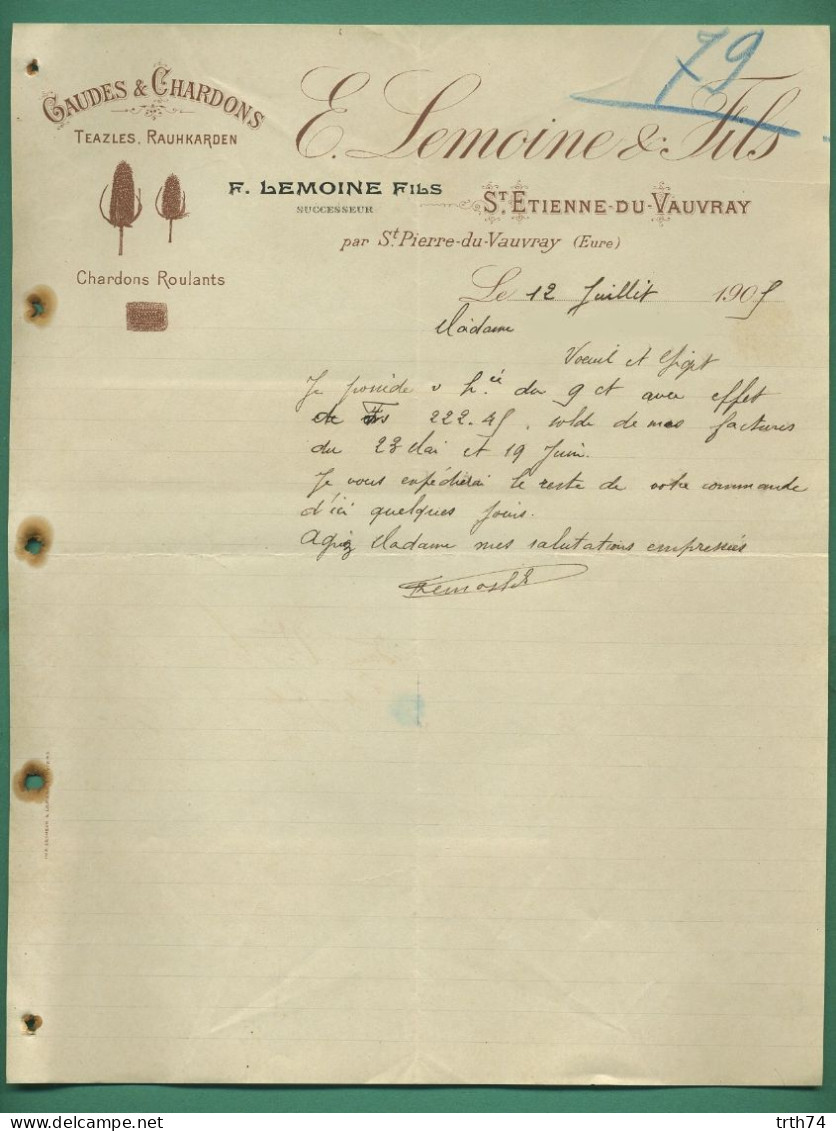 79
GAUDES & CHARDONS
TEAZLES. RAUHKARDEN
Chardons Roulants
E. Lemoine & Fils
F. LEMOINE FILS
SUCCESSEUR
ST ETIENNE-DU-VAUVRAY
par St. Pierre-du-Vauvray (Eure)
Le 12 Juillet 1905
Madame
Voeuil et
Je possède v h. du 9 ct avec effet
de Fs 222.45, solde de mes factures
du 23 Mai et 19 Juin.
Je vous expédierai le reste de votre commande
d'ici quelques jours.
Agréez Madame mes salutations empressées
trth74